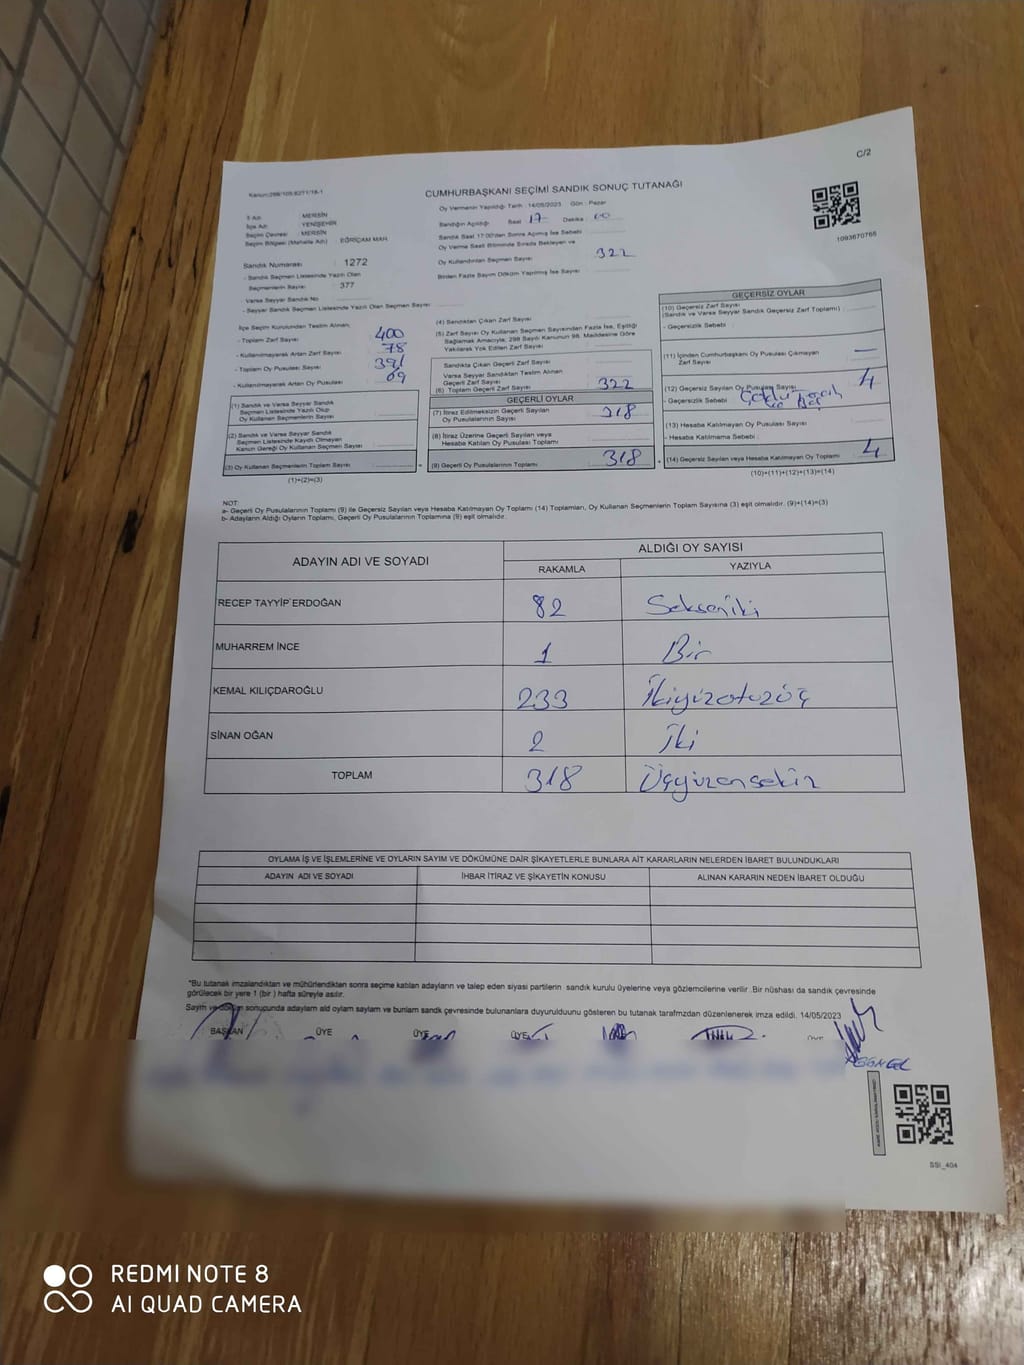 C/2
Kanun:298/105;6271/18-1
CUMHURBAŞKANI SEÇİMİ SANDIK SONUÇ TUTANAĞI
Oy Vermenin Yapıldığı Tarih : 14/05/2023 Gün : Pazar
İl Adı: MERSİN
İlçe Adı: YENİŞEHİR
Seçim Çevresi: MERSİN
Seçim Bölgesi (Mahalle Adı) EĞRİÇAM MAH.
Sandığın Açıldığı Saat 17 Dakika : 00
Sandık Saat 17:00'den Sonra Açılmış İse Sebebi
Oy Verme Saati Bitiminde Sırada Bekleyen ve
Oy Kullandırılan Seçmen Sayısı 322
Birden Fazla Sayım Döküm Yapılmış İse Sayısı
1093670765
Sandık Numarası 1272
- Sandık Seçmen Listesinde Yazılı Olan
Seçmenlerin Sayısı 377
- Varsa Seyyar Sandık No
- Seyyar Sandık Seçmen Listesinde Yazılı Olan Seçmen Sayısı
İlçe Seçim Kurulundan Teslim Alınan;
- Toplam Zarf Sayısı 400
- Kullanılmayarak Artan Zarf Sayısı 78
- Toplam Oy Pusulası Sayısı 391
- Kullanılmayarak Artan Oy Pusulası 69
(1) Sandık ve Varsa Seyyar Sandık
Seçmen Listesinde Yazılı Olup
Oy Kullanan Seçmenlerin Sayısı
(2) Sandık ve Varsa Seyyar Sandık
Seçmen Listesinde Kayıtlı Olmayan
Kanun Gereği Oy Kullanan Seçmen Sayısı
(3) Oy Kullanan Seçmenlerin Toplam Sayısı
(1)+(2)=(3)
(4) Sandıktan Çıkan Zarf Sayısı
(5) Zarf Sayısı Oy Kullanan Seçmen Sayısından Fazla İse, Eşitliği
Sağlamak Amacıyla, 298 Sayılı Kanunun 98. Maddesine Göre
Yakılarak Yok Edilen Zarf Sayısı
Sandıkta Çıkan Geçerli Zarf Sayısı
Varsa Seyyar Sandıktan Teslim Alınan
Geçerli Zarf Sayısı
(6) Toplam Geçerli Zarf Sayısı 322
GEÇERLİ OYLAR
(7) İtiraz Edilmeksizin Geçerli Sayılan
Oy Pusulalarının Sayısı 318
(8) İtiraz Üzerine Geçerli Sayılan veya
Hesaba Katılan Oy Pusulası Toplamı
(9) Geçerli Oy Pusulalarının Toplamı 318
GEÇERSİZ OYLAR
(10) Geçersiz Zarf Sayısı
(Sandık ve Varsa Seyyar Sandık Geçersiz Zarf Toplamı)
- Geçersizlik Sebebi :
(11) İçinden Cumhurbaşkanı Oy Pusulası Çıkmayan
Zarf Sayısı —
(12) Geçersiz Sayılan Oy Pusulası Sayısı 4
- Geçersizlik Sebebi
(13) Hesaba Katılmayan Oy Pusulası Sayısı
- Hesaba Katılmama Sebebi :
(14) Geçersiz Sayılan veya Hesaba Katılmayan Oy Toplamı 4
(10)+(11)+(12)+(13)=(14)
NOT:
a- Geçerli Oy Pusulalarının Toplamı (9) ile Geçersiz Sayılan veya Hesaba Katılmayan Oy Toplamı (14) Toplamları, Oy Kullanan Seçmenlerin Toplam Sayısına (3) eşit olmalıdır. (9)+(14)=(3)
b- Adayların Aldığı Oyların Toplamı, Geçerli Oy Pusulalarının Toplamına (9) eşit olmalıdır.
ADAYIN ADI VE SOYADI ALDIĞI OY SAYISI
RAKAMLA YAZIYLA
RECEP TAYYİP ERDOĞAN 82 Sekseniki
MUHARREM İNCE 1 Bir
KEMAL KILIÇDAROĞLU 233 İkiyüzotuzüç
SİNAN OĞAN 2 İki
TOPLAM 318 Üçyüzonsekiz
OYLAMA İŞ VE İŞLEMLERİNE VE OYLARIN SAYIM VE DÖKÜMÜNE DAİR ŞİKAYETLERLE BUNLARA AİT KARARLARIN NELERDEN İBARET BULUNDUKLARI
ADAYIN ADI VE SOYADI İHBAR İTİRAZ VE ŞİKAYETİN KONUSU ALINAN KARARIN NEDEN İBARET OLDUĞU
*Bu tutanak imzalandıktan ve mühürlendikten sonra seçime katılan adayların ve talep eden siyasi partilerin sandık kurulu üyelerine veya gözlemcilerine verilir .Bir nüshası da sandık çevresinde
görülecek bir yere 1 (bir ) hafta süreyle asılır.
Sayım ve döküm sonucunda adayların ald oyların sayları ve bunların sandık çevresinde bulunanlara duyurulduunu gösteren bu tutanak tarafmzdan düzenlenerek imza edildi. 14/05/2023
BAŞKAN ÜYE ÜYE ÜYE ÜYE
SSI_404
REDMI NOTE 8
AI QUAD CAMERA